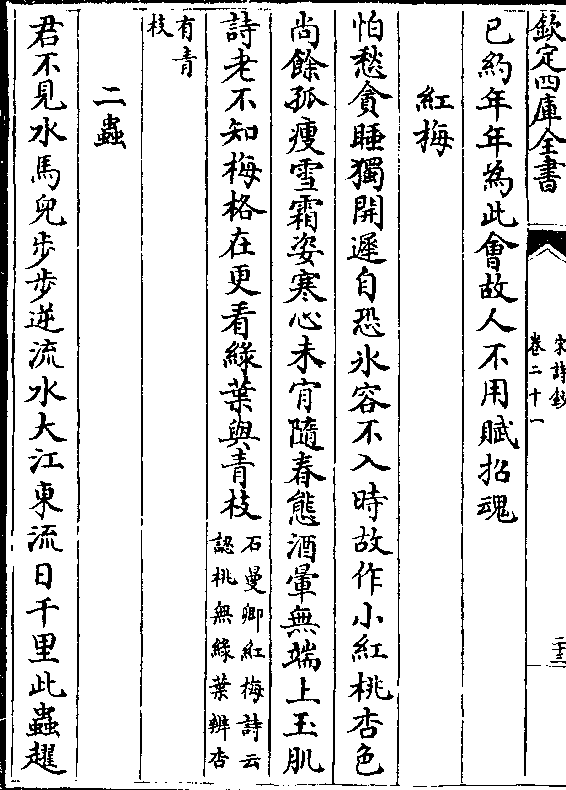 欽定四庫全書
宋詩鈔
卷二十一
二十三
已約年年為此會故人不用賦招魂
紅梅
怕愁貪睡獨開遲自恐氷容不入時故作小紅桃杏色
尚餘孤瘦雪霜姿寒心未肯隨春態酒暈無端上玉肌
詩老不知梅格在更看綠葉與青枝
石曼卿紅梅詩云
認桃無綠葉辨杏
有青
枝
二蟲
君不見水馬兒步步逆流水大江東流日千里此蟲趯